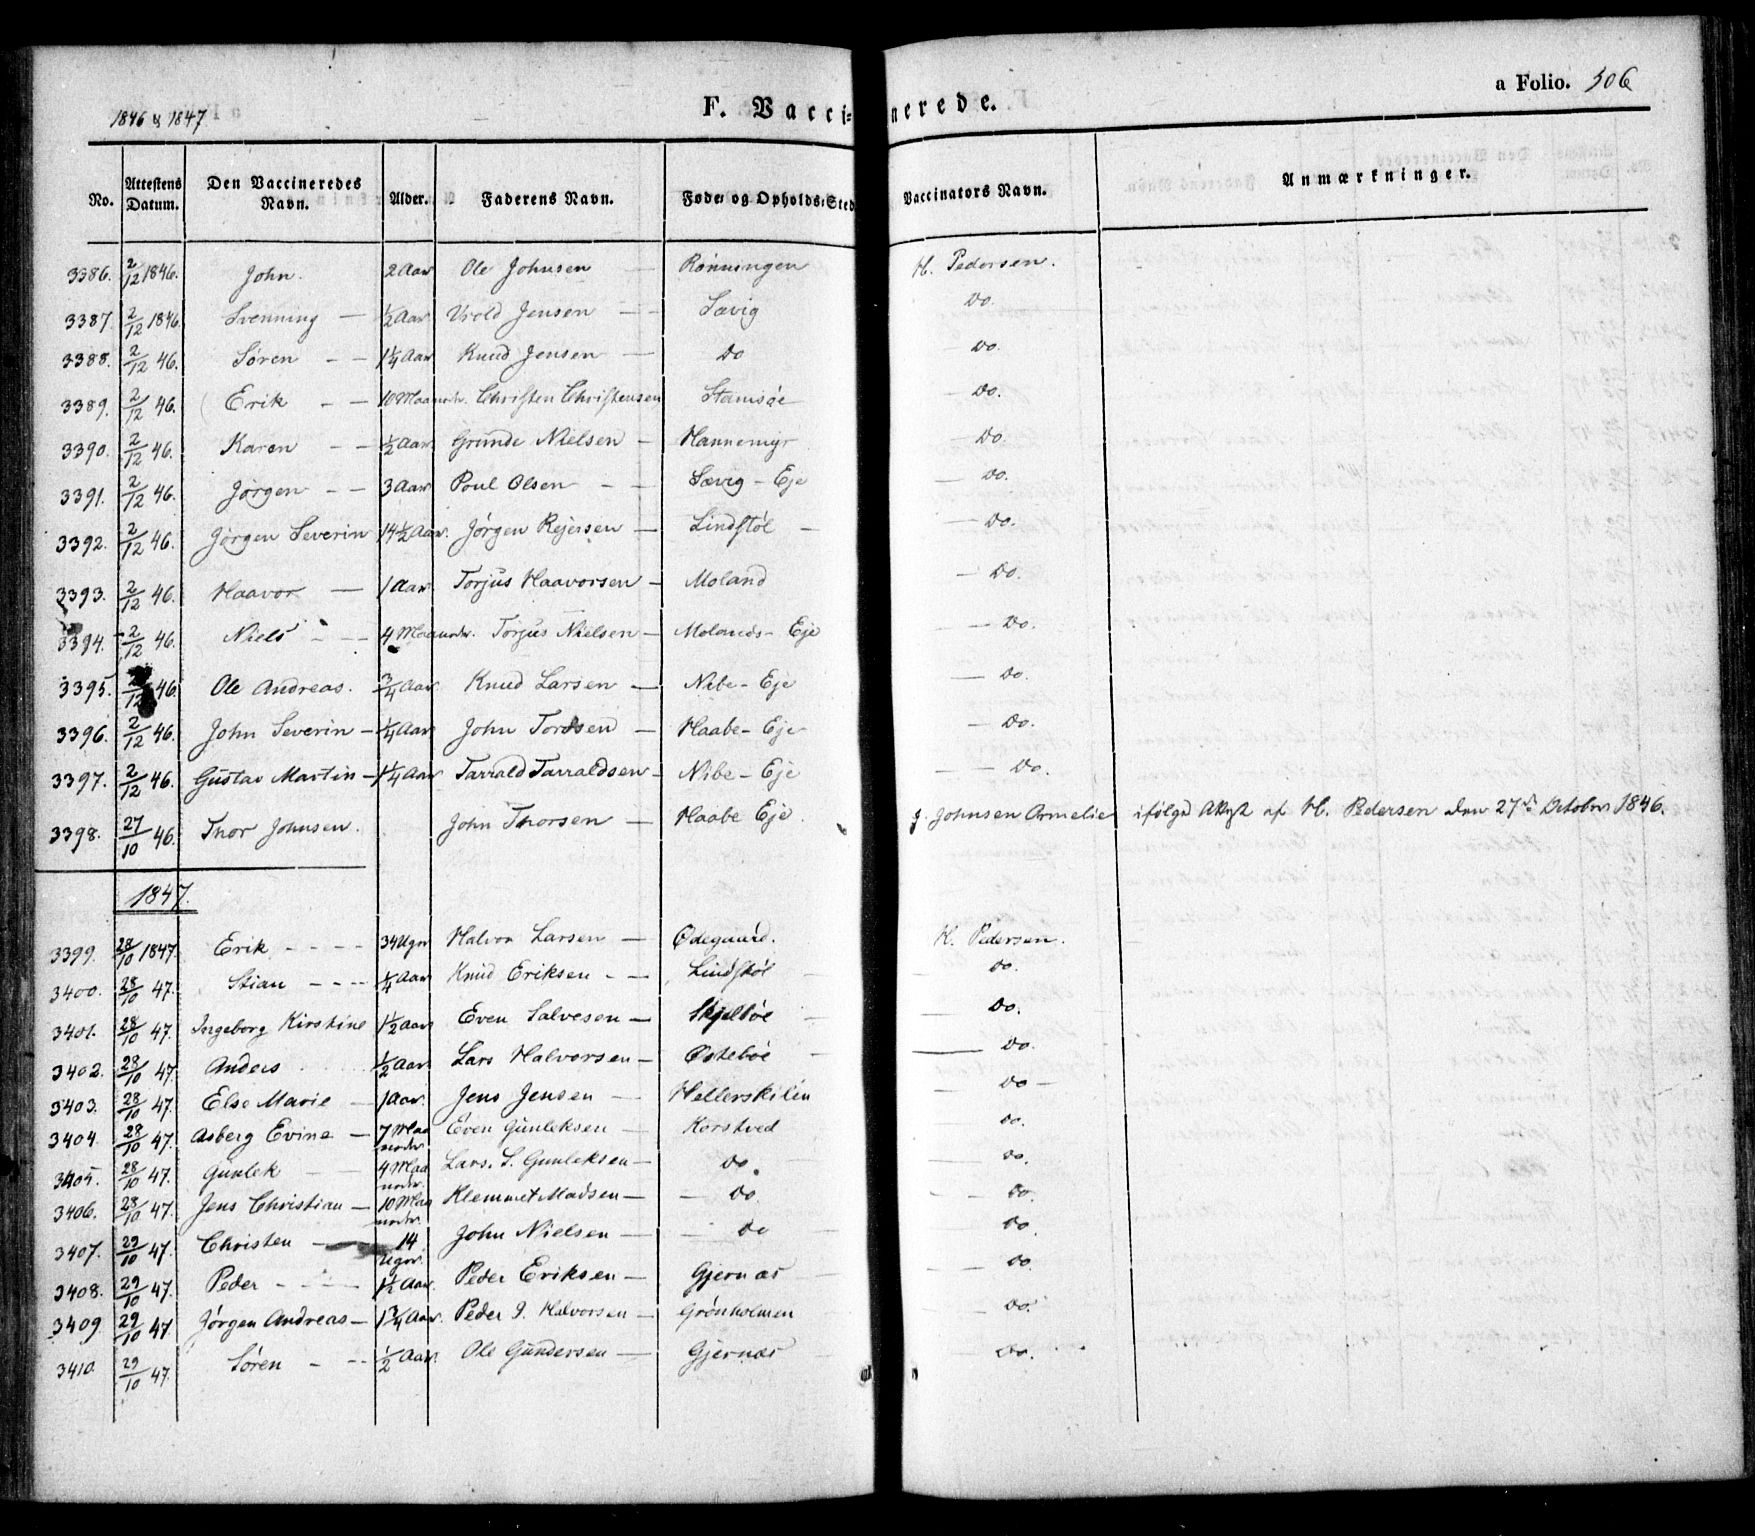 a Folio. 506
1846 & 1847 F. Vaccinerede.
No. Attestens Datum. Den Vaccineredes Navn. Alder. Faderens Navn. Føde- og Opholds-Sted Vaccinators Navn. Anmærkninger.
3386. 2/12 1846. John. 2 Aar Ole Johnsen — Rönningen H. Pedersen.
3387. 2/12 1846. Svenning — 1/2 Aar Vrold Jensen — Sævig Do.
3388. 2/12 46. Søren — 1 1/4 Aar Knud Jensen — Do Do.
3389. 2/12 46. Erik — 10 Maaneder. Christen Christensen Stamsøe Do.
3390. 2/12 46. Karen — 1/2 Aar Grunde Nielsen — Hannemyr Do.
3391. 2/12 46. Jørgen — 3 Aar Poul Olsen — Sævig - Eje Do.
3392. 2/12 46. Jørgen Severin 14 1/2 Aar. Jørgen Rejersen — Lindstøl — Do.
3393. 2/12 46. Haavor — 1 Aar Torjus Haavorsen — Moland Do.
3394. 2/12 46. Niels — 4 Maaneder. Torjus Nielsen — Molands - Eje Do.
3395. 2/12 46. Ole Andreas. 3/4 Aar Knud Larsen — Nibe - Eje Do.
3396. 2/12 46. John Severin — 1/4 Aar John Tordsen — Haabe - Eje Do.
3397. 2/12 46. Gustav Martin — 1 1/4 Aar Tarrald Tarraldsen — Nibe - Eje Do.
3398. 27/10 46. Thor Johnsen. John Thorsen — Haabe Eje. J. Johnsen Ormelie ifølge af H. Pedersen den 27de October 1846.
1847.
3399. 28/10 1847. Erik — 34 Uger Halvor Larsen — Ødegaard. H. Pedersen.
3400. 28/10 47. Stian — 1/4 Aar Knud Eriksen — Lindstøl Do.
3401. 28/10 47. Ingeborg Kirstine 1 1/2 Aar Even Salvesen — Skjelbøe Do.
3402. 28/10 47. Anders 1/2 Aar Lars Halvorsen — Østebøe Do.
3403. 28/10 47. Else Marie — 1 Aar. Jens Jensen — Hellerskilen Do —
3404. 28/10 47. Asberg Evine — 7 Maaneder. Even Gunleksen — Korstved Do.
3405. 28/10 47. Gunlek — 4 Maaneder. Lars. S. Gunleksen — Do. Do.
3406. 28/10 47. Jens Christian — 10 Maaneder. Klemmet Madsen — Do. Do.
3407. 29/10 47. Christen — 14 Uger. John Nielsen — Do Do.
3408. 29/10 47. Peder — 1 1/2 Aar. Peder Eriksen — Gjernæs Do.
3409. 29/10 47. Jørgen Andreas — 1 3/4 Aar. Peder J. Halvorsen — Grönholmen Do.
3410. 29/10 47. Søren — 1/2 Aar. Ole Gundersen — Gjernæs Do.